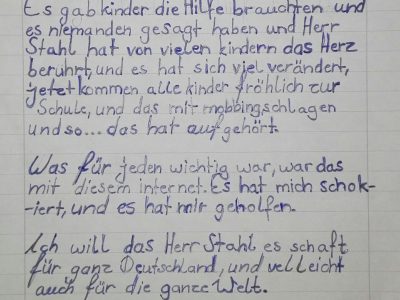 Es gab kinder die Hilfe brauchten und
es niemanden gesagt haben und Herr
Stahl hat von vielen kindern das Herz
berührt, und es hat sich viel verändert,
jetzt kommen alle kinder fröhlich zur
Schule, und das mit mobbing schlagen
und so... das hat aufgehört.
Was für jeden wichtig war, war das
mit diesem internet. Es hat mich schok-
iert, und es hat mir geholfen.
Ich will das Herr Stahl es schaft
für ganz Deutschland, und velleicht
auch für die ganze Welt.